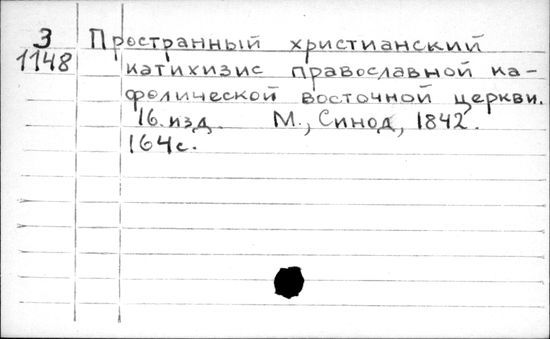 З Пространный христианский
1148 катихизис православной ка-
фолической восточной церкви.
16. изд. М., Синод, 1842.
164 с.